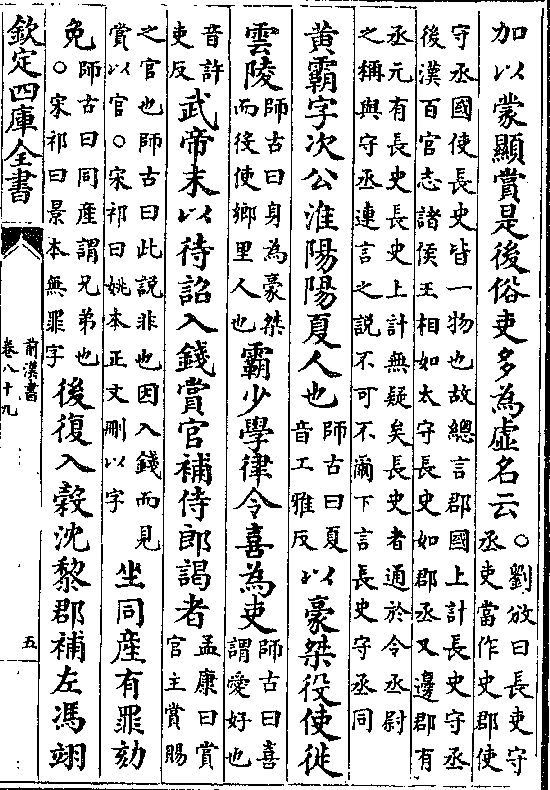 加以蒙顯賞是後俗吏多為虛名云○劉攽曰長吏守丞吏當作史郡使
守丞國使長史皆一物也故總言郡國上計長史守丞
後漢百官志諸侯王相如太守長史如郡丞又邊郡有
丞元有長史長史上計無疑矣長史者通於令丞尉
之稱與守丞連言之說不可不爾下言長史守丞同
黃霸字次公淮陽陽夏人也師古曰夏音工雅反以豪桀役使徙
雲陵師古曰身為豪桀而役使鄉里人也霸少學律令喜為吏師古曰喜謂愛好也
音許吏反武帝末以待詔入錢賞官補侍郎謁者孟康曰賞官主賞賜
之官也師古曰此說非也因入錢而見賞以官○宋祁曰姚本正文刪以字坐同産有罪劾
免師古曰同産謂兄弟也○宋祁曰景本無罪字後復入榖沈黎郡補左馮翊
欽定四庫全書
前漢書
卷八十九
五